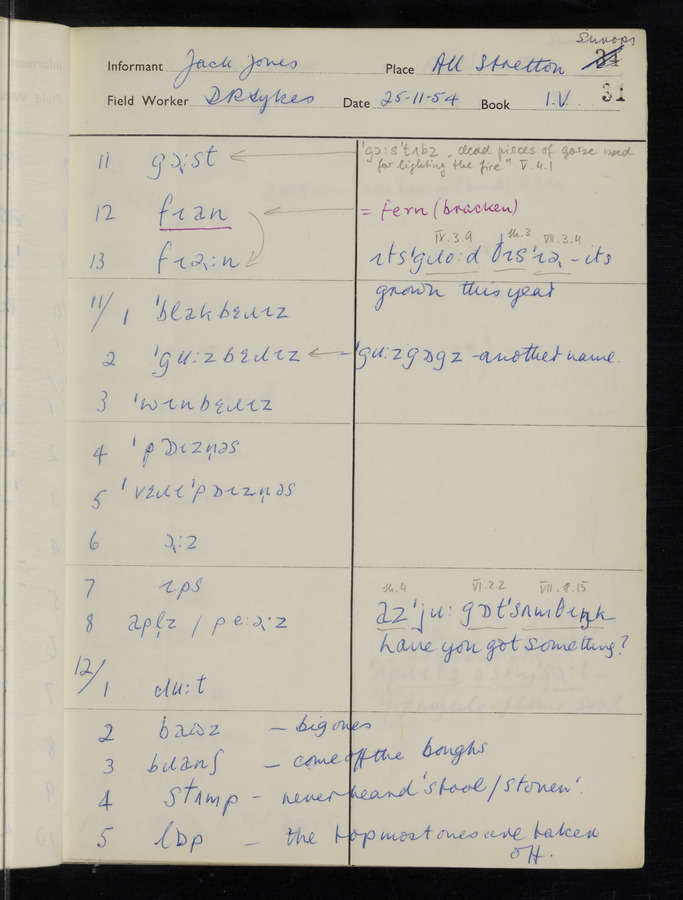 Salops
Informant Jack Jones Place All Stretton 31
Field Worker D R Sykes Date 25-11-54 Book IV 31
11 gɔ˞:st
'gɔ:s'tʌbz "dead pieces of gorse used
for lighting the fire" V.4.1
12 fɪəɹn = fern (bracken)
IX.3.9 th.3 VII.3.4
13 fɪə˞:n ɪts'gɹo:d ðɪs'ɪə˞ - its
grown this year
11/1 'blakbɛɹɪz
2 'gu:zbɛɹɪz 'gu:zgɒgz - another name
3 'wɪnbɛɹɪz
4 'pɒɪzn̩əs
5 'vɛɹɪ'pɒɪzn̩əs
6 ə˞:z
7 ɪps
th.4 VI.2.2 VII.8.15
8 apl̩z / pe:ə˞:z az'ju: gɒt'sʌmbɪŋk
have you got something?
12/1 ɹu:t
2 baʊz - big ones
3 bɹanʃ - come off the boughs
4 stʌmp - never heard 'stool / stoven'.
5 lɒp - the topmost ones are taken
off.